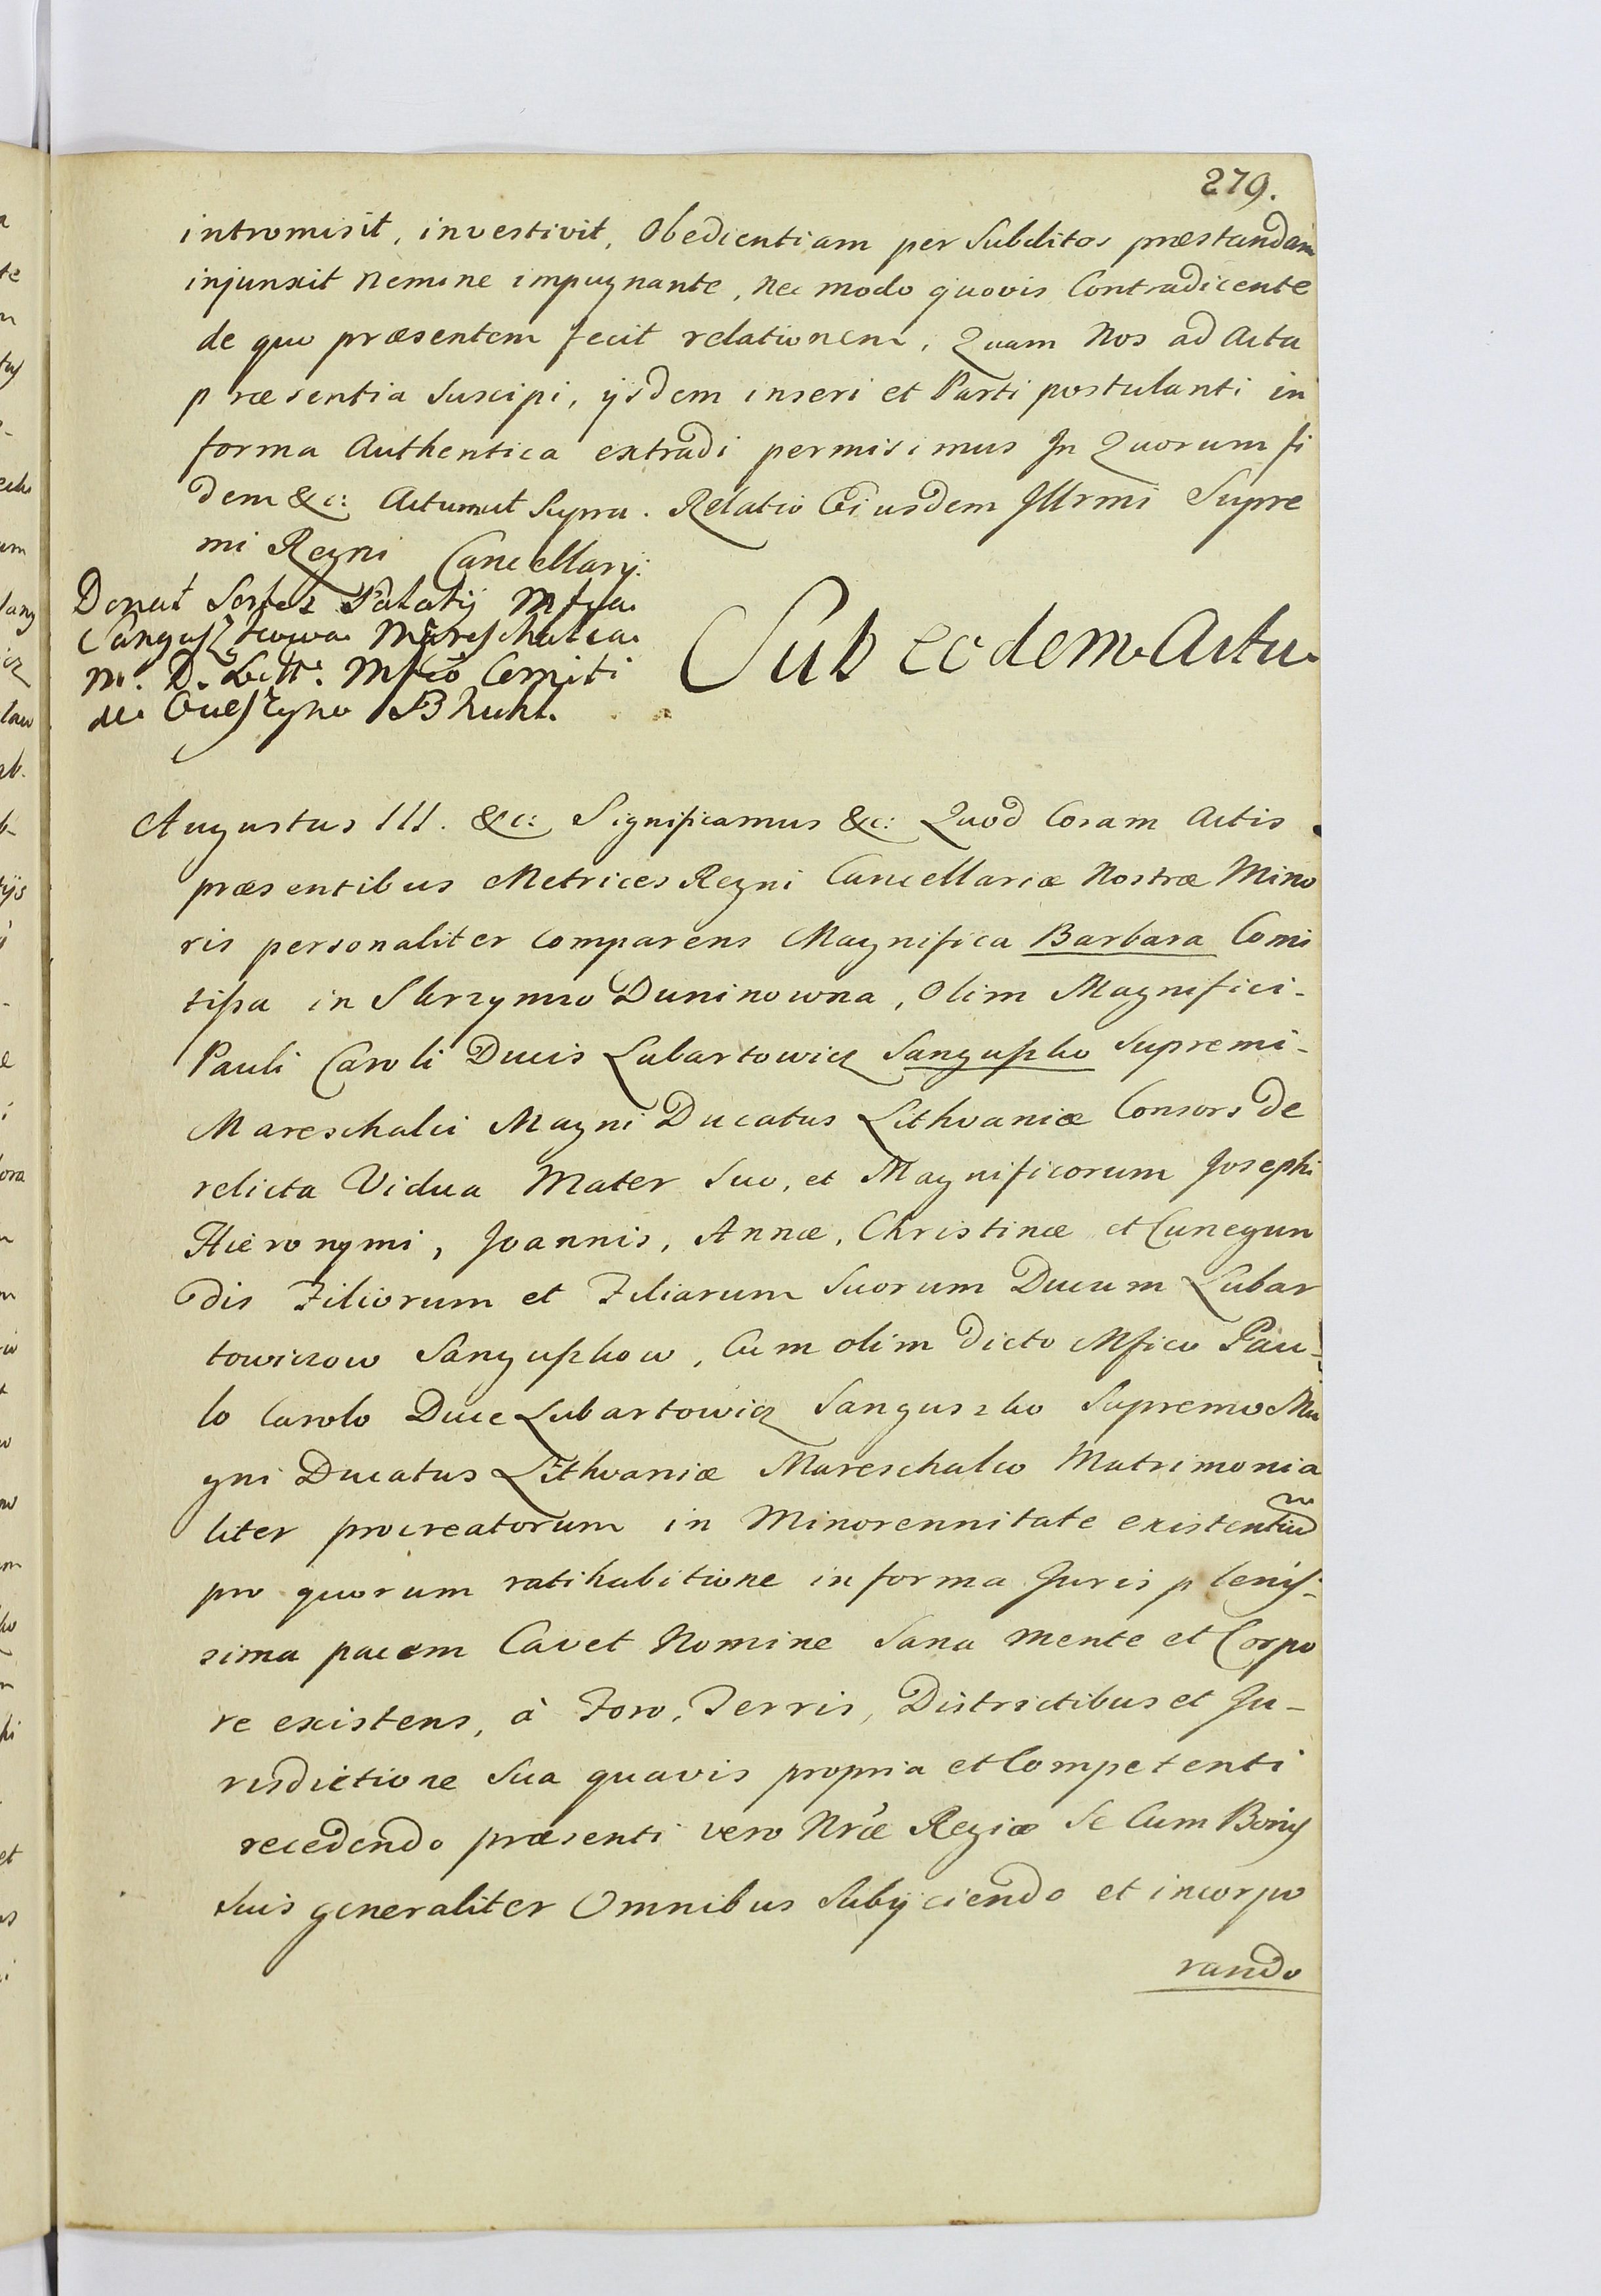 279.
intromisit, investivit, Obedientiam per Subditos præstandam
injunxit Nemine impugnante, nec modo quovis Contradicente
de quo præsentem fecit relationem, Quam Nos ad Acta
præsentia Suscipi, ijsdem inseri et Parti postulanti in
forma Authentica extradi permisimus In Quorum fi
dem &c: Actum ut Supra. Relatio Eiusdem Illrmi Supre
mi Regni Cancellarij.
Donat Sortes Palatij Mfca
Sanguszkowa Mareschalca
M. D. Litt: Mfco Comiti
de Cieszyno Bhuhl.
Sub eodem Actu
Augustus III. &c: Significamus &c: Quod Coram Actis
præsentibus Metrices Regni Cancellariæ Nostræ Mino
ris personaliter Comparens Magnifica Barbara Comi
tissa in Skrzynno Duninowna, Olim Magnifici-
Pauli Caroli Ducis Lubartowicz Sanguszko Supremi-
Mareschalci Magni Ducatus Lithvaniæ Consors De
relicta Vidua Mater Suo, et Magnificorum Josephi
Hieronymi, Joannis, Annæ, Christinæ et Cunegun
dis Filiorum et Filiarum Suorum Ducum Lubar
towiczow Sanguszkow, Cum olim Dicto Mfico Pau-
lo Carolo Duce Lubartowicz Sanguszko Supremo Ma
gni Ducatus Lithvaniæ Mareschalco Matrimonia
liter procreatorum in Minorennitate existentium
pro quorum ratihabitione in forma Juris plenis-
sima pacem Cavet Nomine Sana mente et Corpo
re existens, à Foro, Terris, Districtibus et Ju-
risdictione Sua quavis propria et Competenti
recedendo præsenti vero Nræ Regiæ Se Cum Bonis
Suis generaliter Omnibus Subijciendo et incorpo
rando